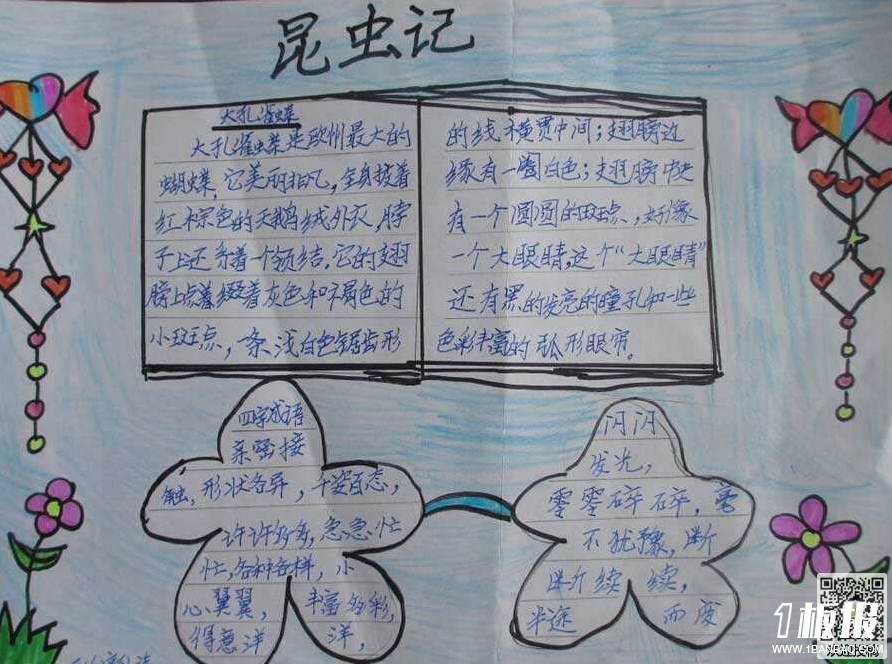 昆虫记
大孔雀蝶
大孔雀蝶是欧州最大的
蝴蝶，它美丽非凡，全身披着
红棕色的天鹅绒外衣，脖
子上还系着一个领结，它的翅
膀上点着缀着灰色和褐色的
小斑点，一条浅白色锯齿形
的线横贯中间；翅膀边
缘有一圈白色；翅膀中央
有一个圆圆的斑点，好像
一个大眼睛，这个“大眼睛”
还有黑的发亮的瞳孔和一些
色彩丰富的弧形眼帘。
四字成语
亲密接
触，形状各异，千姿百态，
许许多多，急急忙
忙，各种各样，小
心翼翼，丰富多彩，
得意洋洋，
闪闪
发光，
零零碎碎，毫
不犹豫，断
断续续，
半途而废
1板报
WWW.1BANBAO.COM